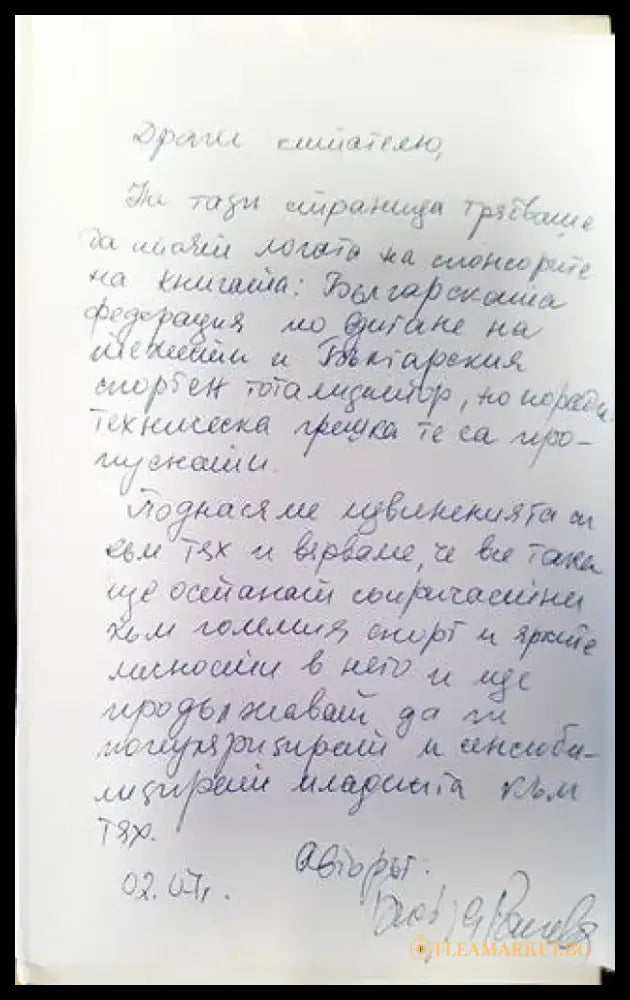 Драги читателю,
На тази страница трябваше
да стоят логата на спонсорите
на книгата: Българската
федерация по вдигане на
тежести и Български
спортен тотализатор, но поради
техническа грешка те са про-
пуснати.
Поднасяме извиненията си
към тях и вярваме, че все така
ще останат съпричастни
към големия спорт и ярките
личности в него и ще
продължават да ги
популяризират и
младежта към
тях.
Авторът:
02.07г.
FLEAMARKET.BG